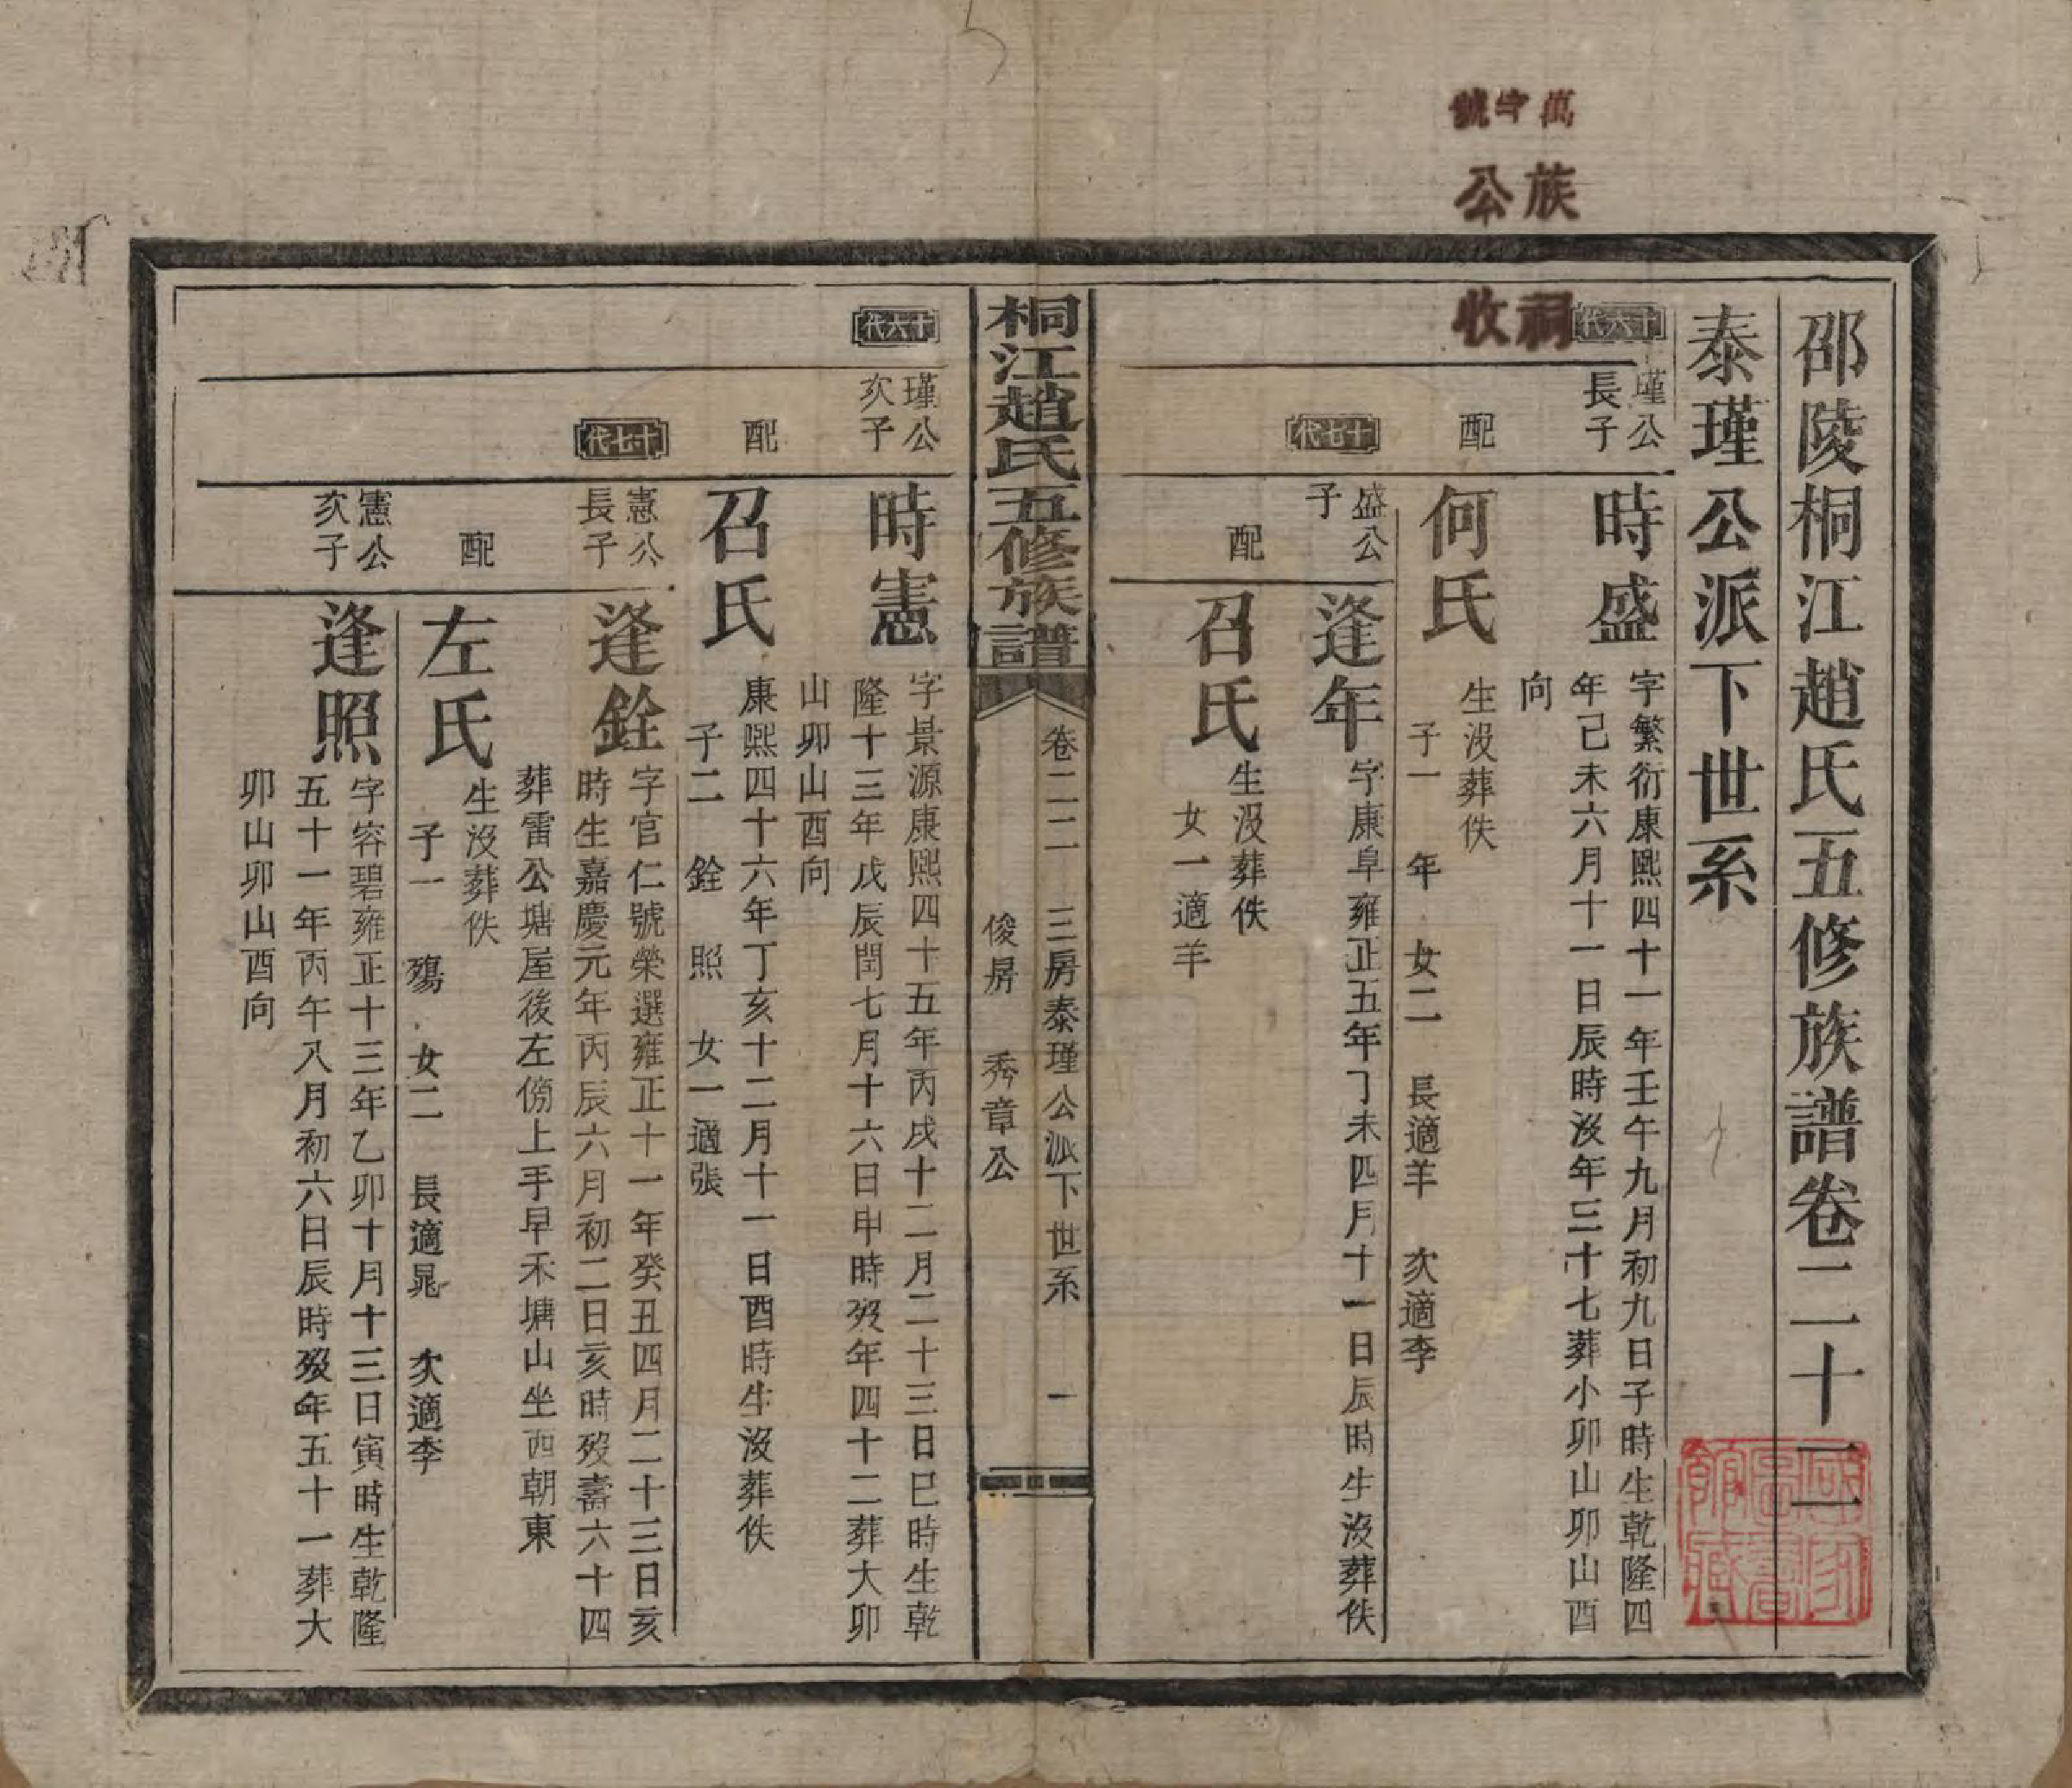 萬字號
族公
祠收
邵陵桐江趙氏五修族譜卷二十二
泰瑾公派下世系
十六代
瑾公
長子
時盛
字繁衍康熙四十一年壬午九月初九日子時生乾隆四
年己未六月十一日辰時沒年三十七葬小卯山卯山酉
向
配
何氏
生沒葬佚
子一 年 女二 長適羊 次適李
十七代
盛公
子
逢年
字康阜雍正五年丁未四月十一日辰時生沒葬佚
配
召氏
生沒葬佚
女一適羊
桐江趙氏五修族譜
卷二二 三房泰瑾公派下世系 一
俊房 秀章公
十六代
瑾公
次子
時憲
字景源康熙四十五年丙戌十二月二十三日巳時生乾
隆十三年戊辰閏七月十六日申時歿年四十二葬大卯
山卯山酉向
配
召氏
康熙四十六年丁亥十二月十一日酉時生沒葬佚
子二 銓 照 女一適張
十七代
憲公
長子
逢銓
字官仁號榮選雍正十一年癸丑四月二十三日亥
時生嘉慶元年丙辰六月初二日亥時歿壽六十四
葬雷公塘屋後左傍上手早禾塘山坐西朝東
配
左氏
生沒葬佚
子一 殤 女二 長適晁 次適李
憲公
次子
逢照
字容碧雍正十三年乙卯十月十三日寅時生乾隆
五十一年丙午八月初六日辰時歿年五十一葬大
卯山卯山酉向
國家圖書館藏